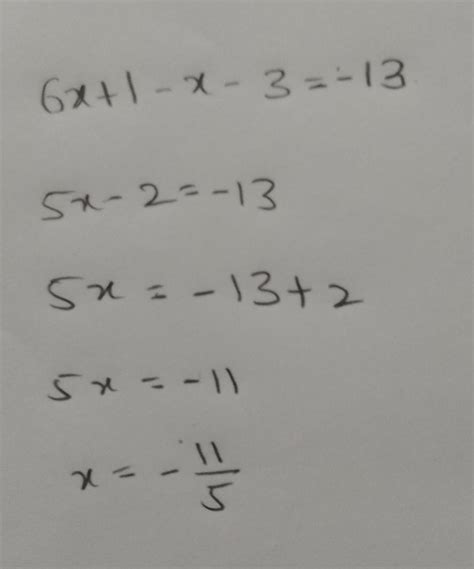 6x+1-x-3=-13
5x-2=-13
5x=-13+2
5x=-11
x=-11/5